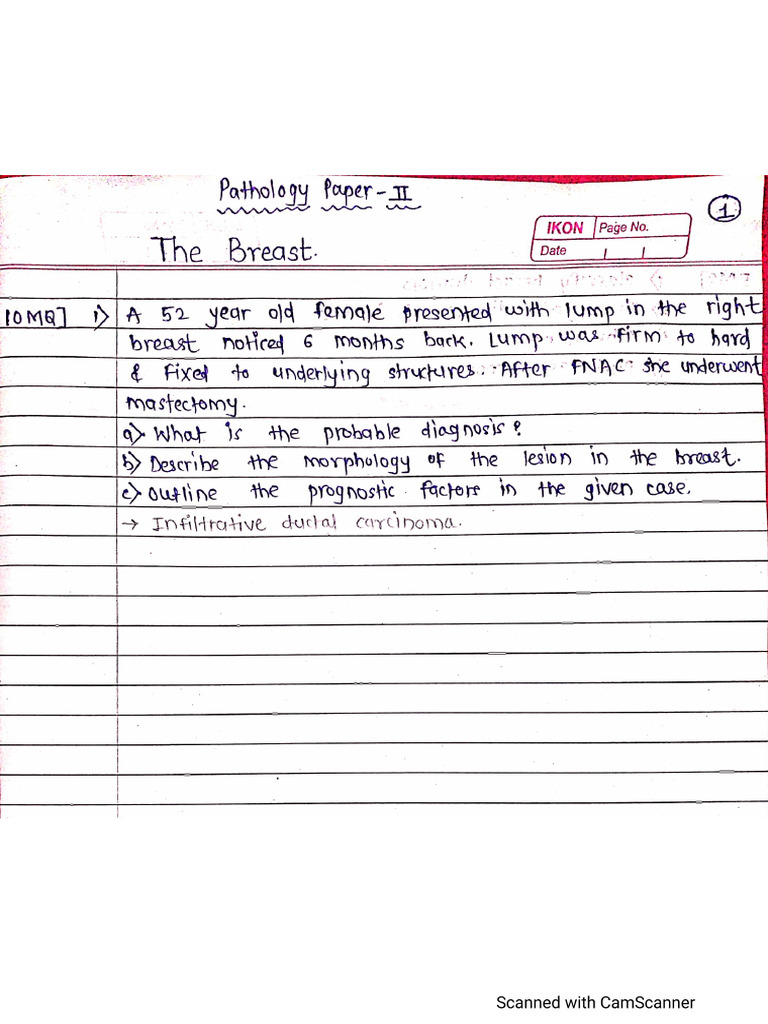 Pathology Paper - II
1
IKON Page No.
Date
The Breast.
10 MQ] 1) A 52 year old female presented with lump in the right
breast noticed 6 months back. Lump was firm to hard
& fixed to underlying structures. After FNAC she underwent
mastectomy.
a) What is the probable diagnosis?
b) Describe the morphology of the lesion in the breast.
c) Outline the prognostic factors in the given case.
→ Infiltrative ductal carcinoma.
Scanned with CamScanner